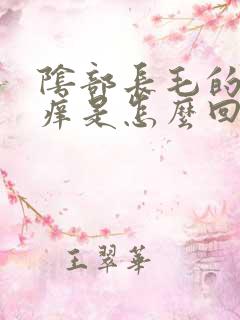 陰部長毛的
痒是怎麼回
王翠華